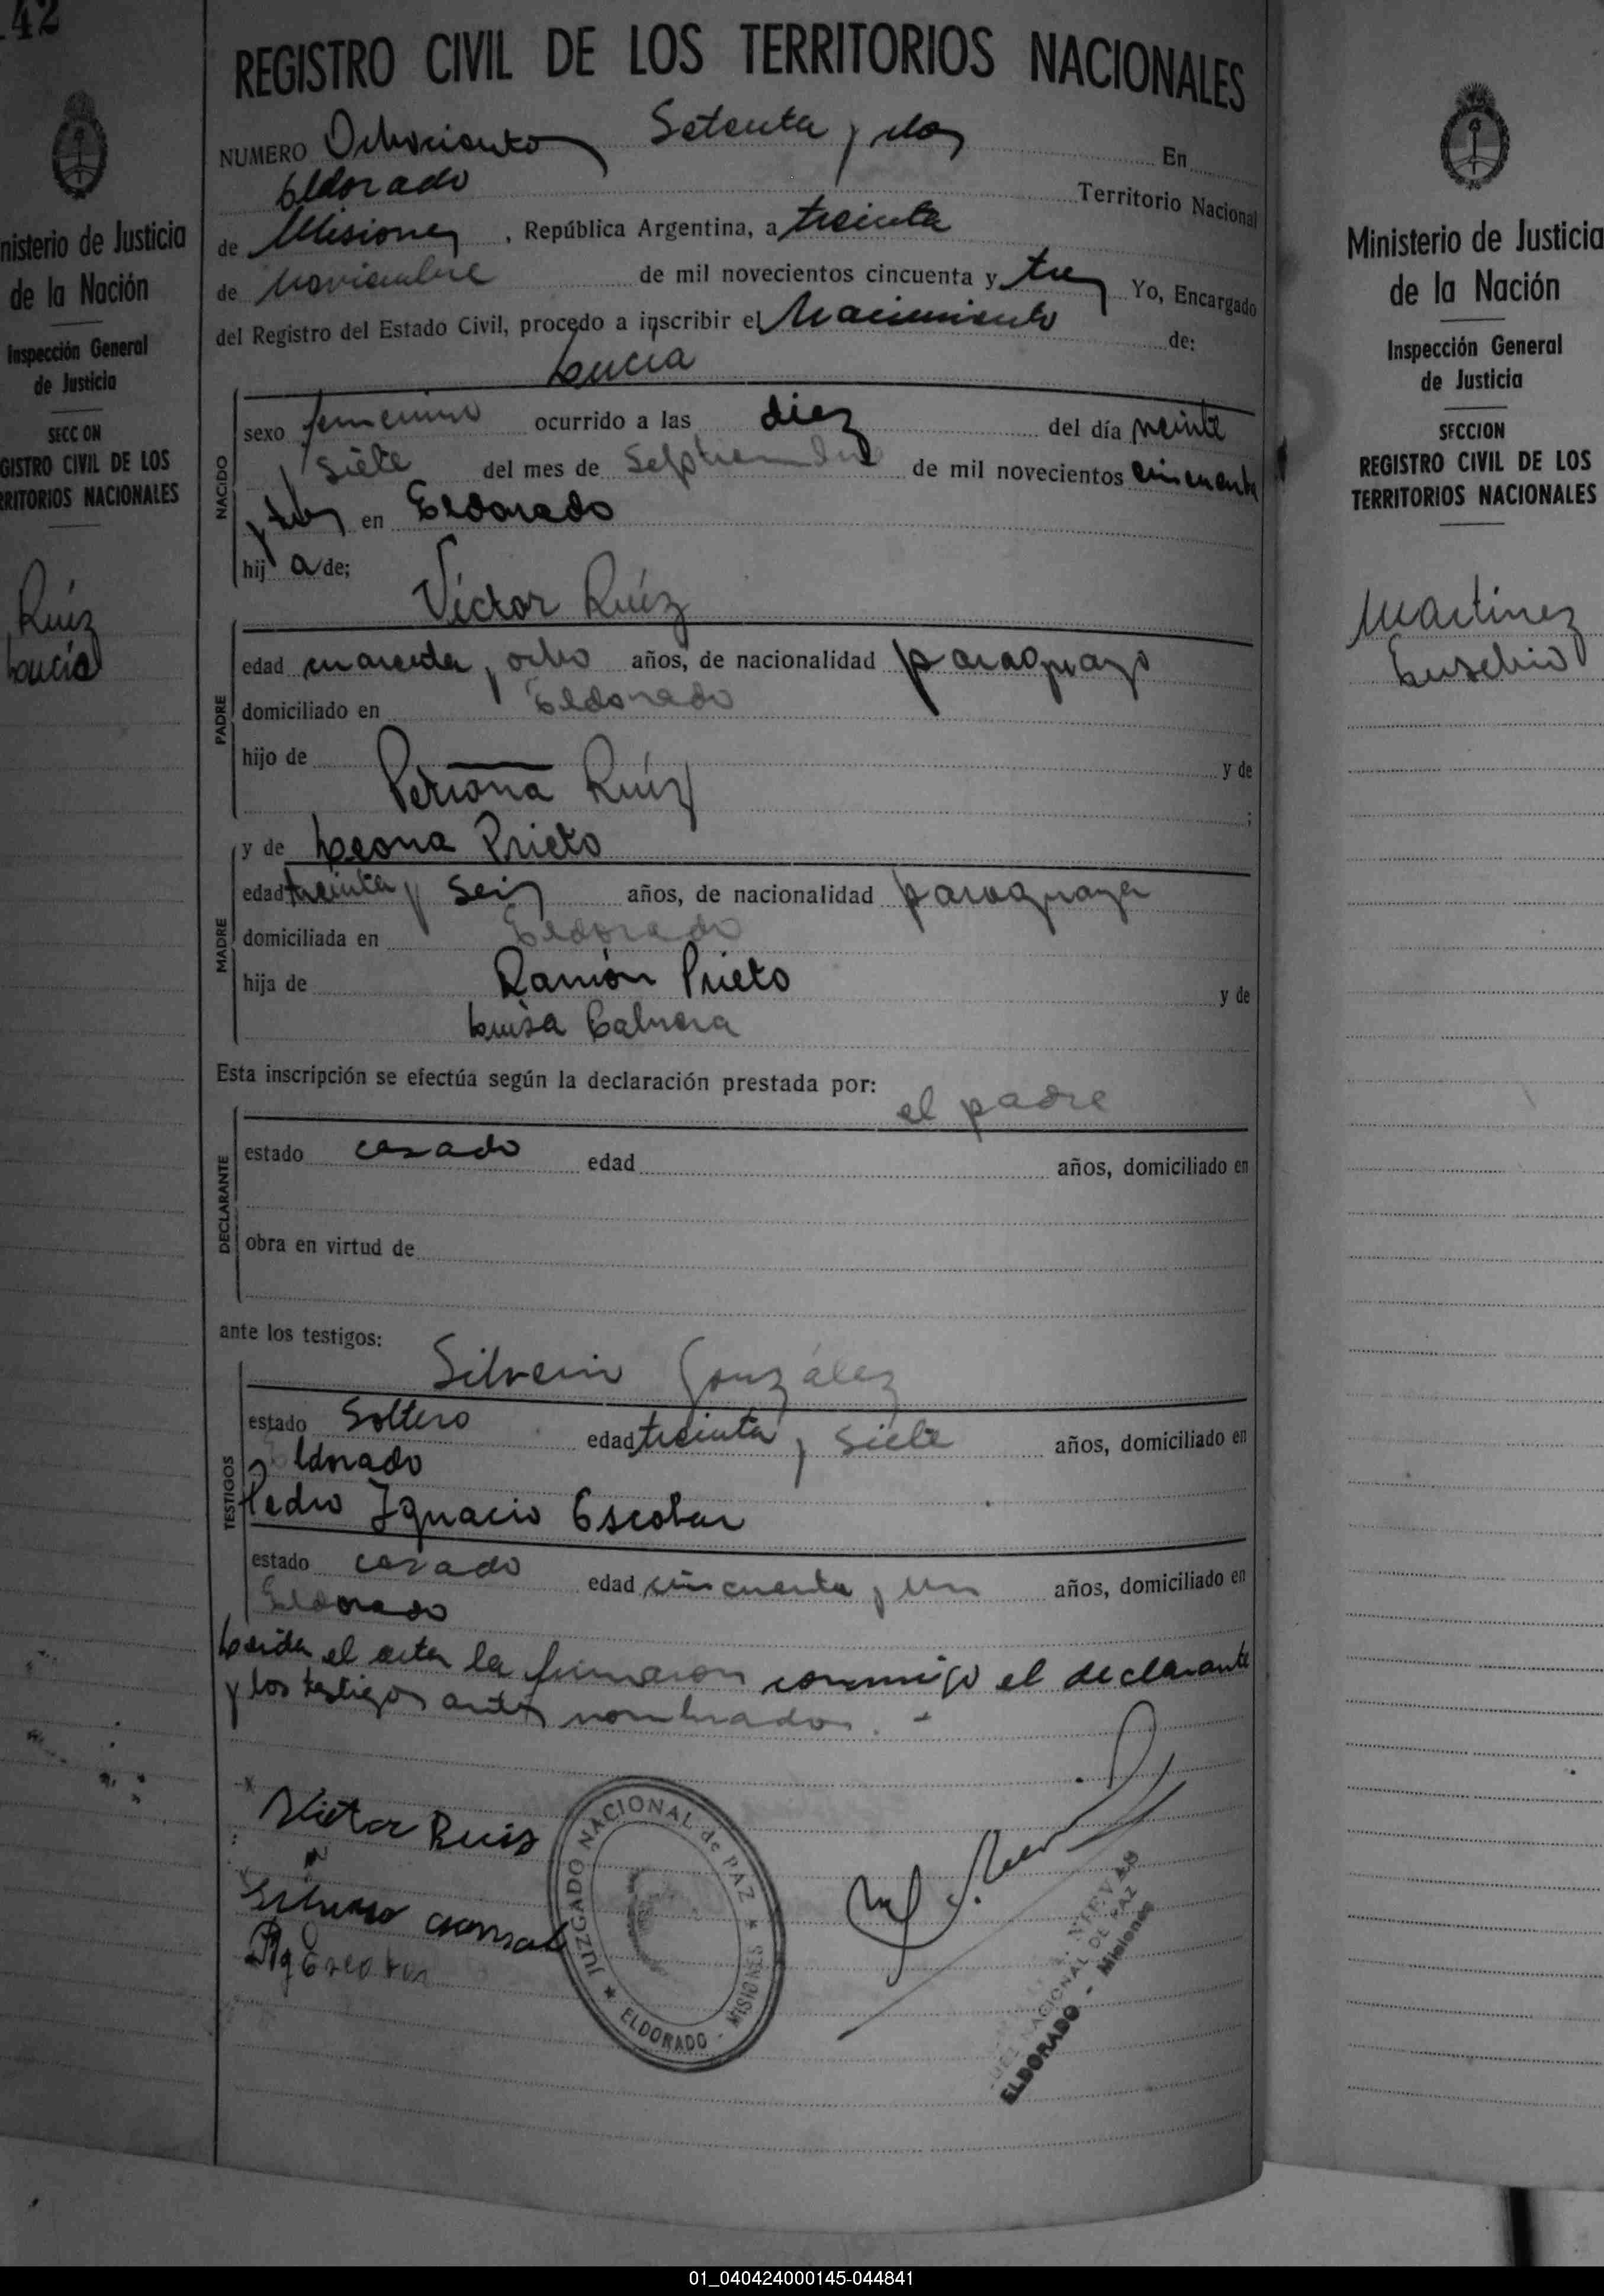 142
nisterio de Justicia
de la Nación
Inspección General
de Justicia
SECCION
GISTRO CIVIL DE LOS
RRITORIOS NACIONALES
Ruíz
Lucía
REGISTRO CIVIL DE LOS TERRITORIOS NACIONALES
NUMERO Ochocientos Setenta y dos En
Eldorado Territorio Nacional
de Misiones, República Argentina, a treinta
de noviembre de mil novecientos cincuenta y tres Yo, Encargado
del Registro del Estado Civil, procedo a inscribir el Nacimiento de:
Lucia
NACIDO
sexo femenino ocurrido a las diez del día veinte
y siete del mes de Septiembre de mil novecientos cincuenta
y tres en Eldorado
hija de;
Víctor Ruíz
PADRE
edad cuarenta y ocho años, de nacionalidad paraguayo
domiciliado en Eldorado
hijo de y de
Petrona Ruíz ;
y de Leona Prieto
MADRE
edad treinta y seis años, de nacionalidad paraguaya
domiciliada en Eldorado
hija de Ramón Prieto y de
Luisa Cabrera
Esta inscripción se efectúa según la declaración prestada por:
el padre
DECLARANTE
estado casado edad años, domiciliado en
obra en virtud de
ante los testigos:
Silverio González
TESTIGOS
estado Soltero edad treinta y siete años, domiciliado en
Eldorado
Pedro Ignacio Escobar
estado casado edad cincuenta y un años, domiciliado en
Eldorado
Leida el acta la firmaron conmigo el declarante
y los testigos antes nombrados. -
Victor Ruis
Escobar
JUZGADO NACIONAL de PAZ
ELDORADO - MISIONES
NACIONAL DE PAZ
ELDORADO - Misiones
Ministerio de Justicia
de la Nación
Inspección General
de Justicia
SECCION
REGISTRO CIVIL DE LOS
TERRITORIOS NACIONALES
Martinez
Eusebio
01_040424000145-044841